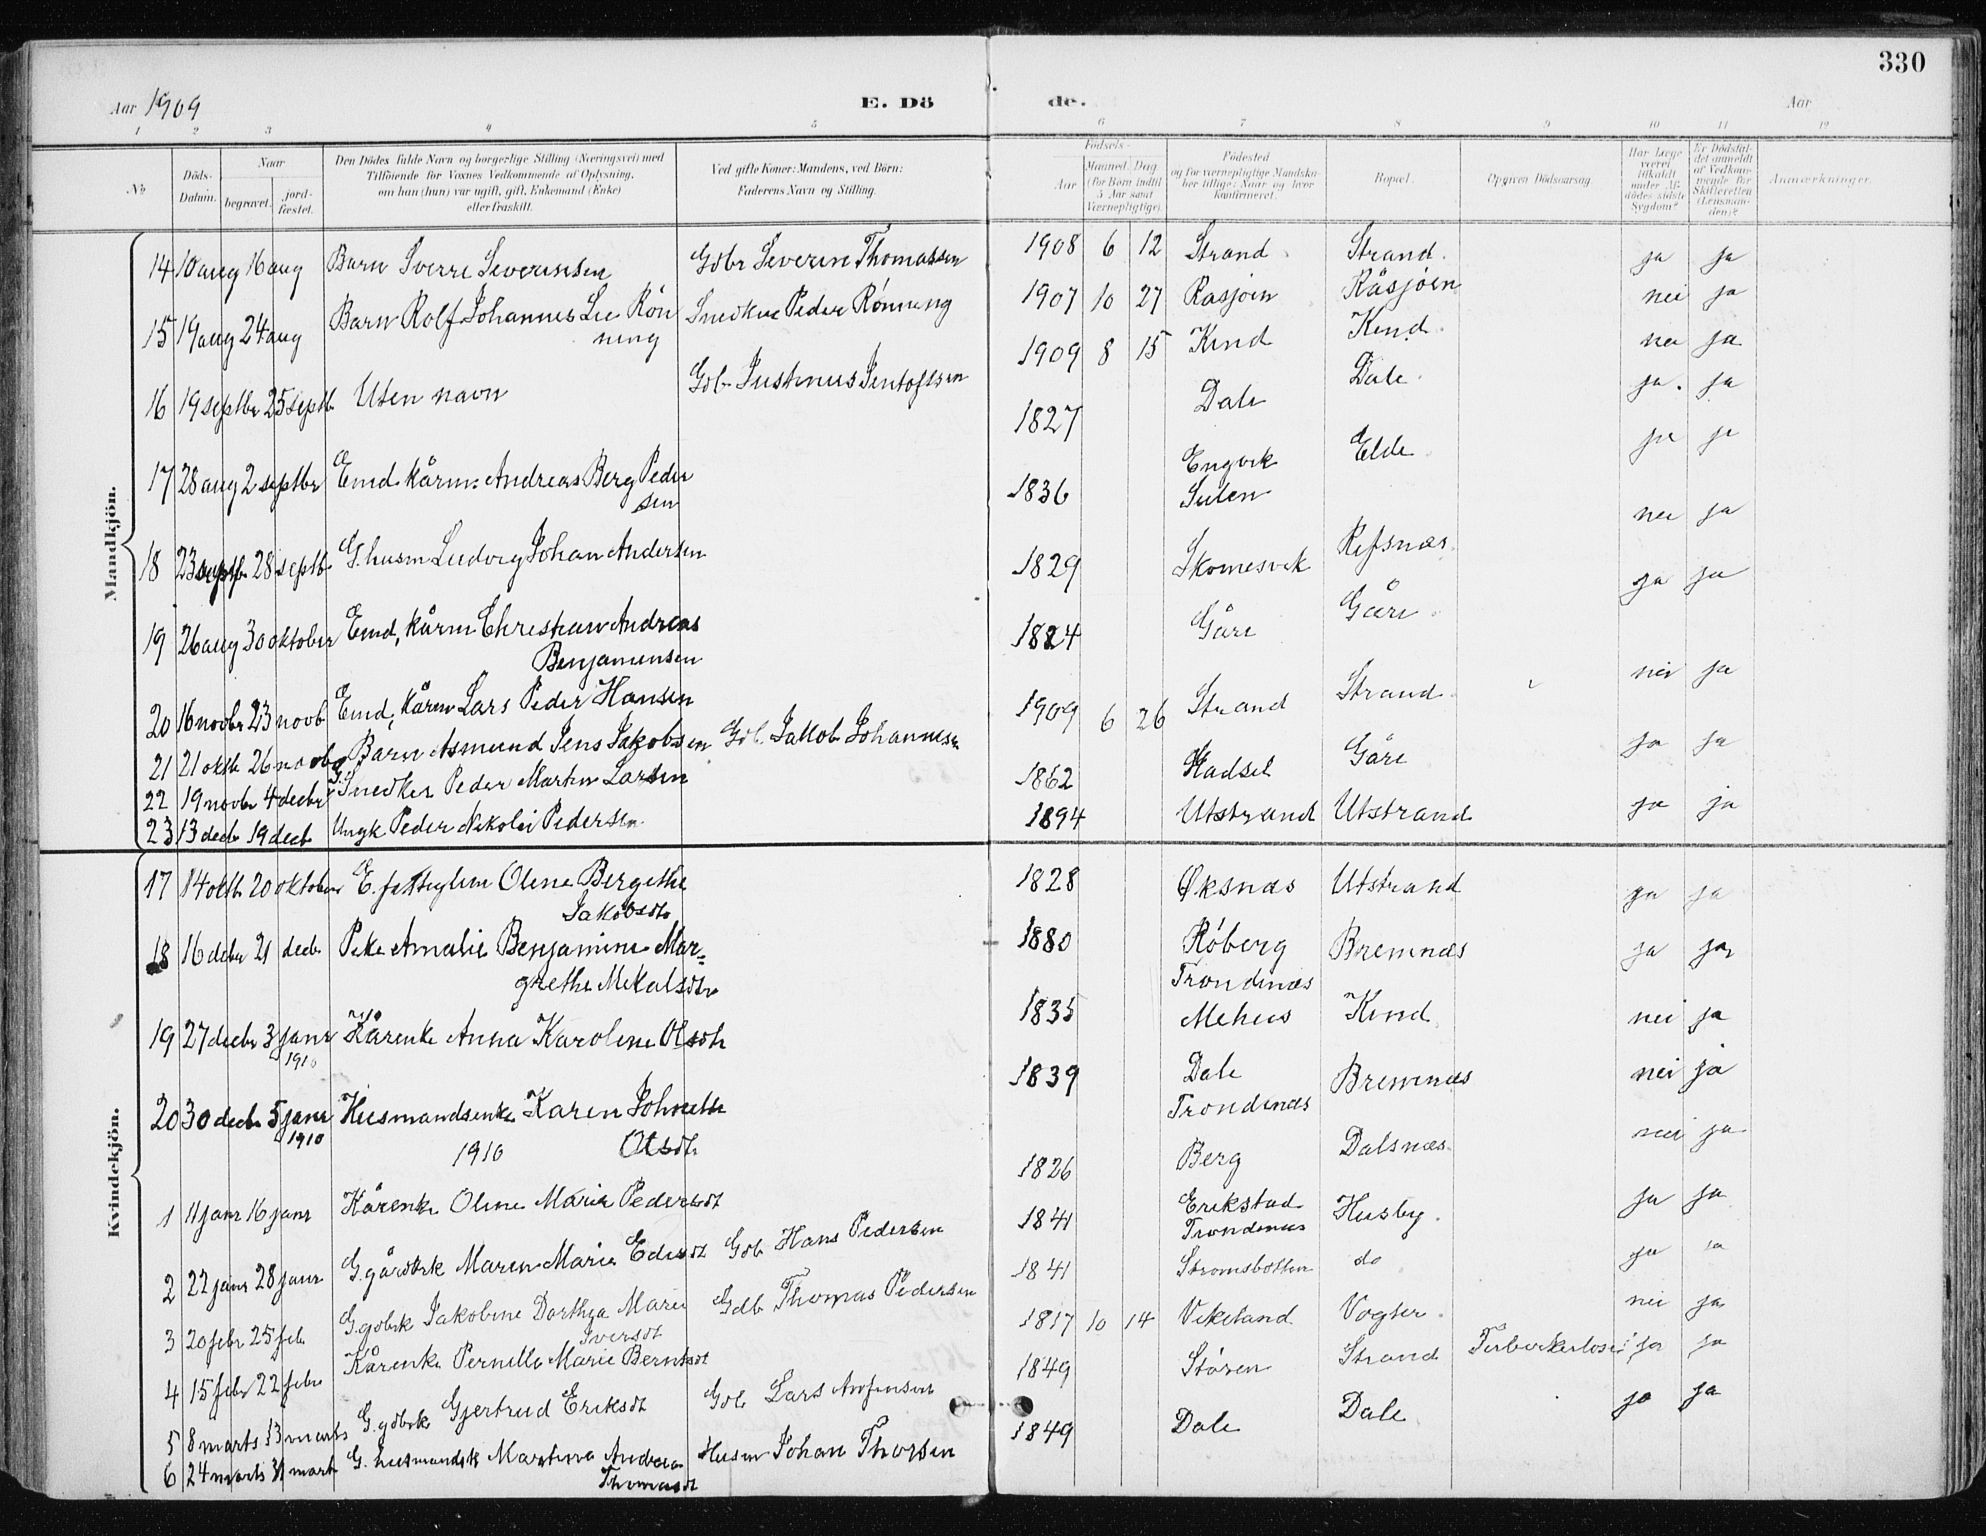 330
Aar 1909
E. Dö
de.
Aar
1 2 3 4 5 6 7 8 9 10 11 12
No
Döds-Datum.
Naar
begravet.
jordfæstet.
Den Dödes fulde Navn og borgerlige Stilling (Næringsvei) med
Tilföiende for Voxnes Vedkommende af Oplysning,
om han (hun) var ugift, gift, Enkemand (Enke)
eller fraskilt.
Ved gifte Koner: Mandens, ved Börn:
Faderens Navn og Stilling.
Födsels-
Aar
Maaned. Dag
(for Börn indtil
5 Aar samt
Værnepligtige).
Födested
og for værnepligtige Mandskaber tillige: Naar og hvor
konfirmeret.
Bopæl.
Opgiven Dödsaarsag.
Har Læge
været
tilkaldt
under Afdödes sidste
Sygdom?
Er Dödsfaldet anmeldt
af Vedkommende for
Skifteretten
(Lensmanden)?
Anmærkninger.
Mandkjön.
14 10 aug 16 aug Barn Sverre Severinsen Gdbr Severin Thomassen 1908 6 12 Strand Strand. ja ja
15 19 aug 24 aug Barn Rolf Johannes Lie Rön
ning Snedker Peder Rönning 1907 10 27 Rasjöen Råsjöen nei ja
16 19 septbr 25 septb Uten navn Gdb Justinus Jentoftsen 1909 8 15 Kind Kind. nei ja
17 28 aug 2 septbr Emd. kårm: Andreas Berg Peder
sen 1827 Dale Dale. ja. ja
18 23 septb. 28 septb. G. husm Ludvig Johan Andersen 1836 Engvik
Sulen Elde ja ja
19 26 aug 30 oktober Emd, kårm Christian Andreas
Benjaminsen 1829 Skomesvik Refsnæs. nei ja
20 16 novbr 23 novb Emd, kårm Lars Peder Hansen 1824 Gåre Gåre. ja ja
21 21 oktb 26 novbr Barn Asmund Jens Jakobsen Gdb. Jakob Johannesen 1909 6 26 Strand Strand. nei ja
22 19 novbr 4 decbr G. Snedker Peder Martin Larsen 1862 Hadsel Gåre ja ja
23 13 decb 19 decb Ungk Peder Nikolai Pedersen 1894 Utstrand Utstrand ja ja
Kvindekjön.
17 14 oktb 20 oktober E. fattiglem Oline Bergithe
Jakobsdtr 1828 Øksnæs Utstrand ja ja
18 16 decbr 21 decb Pike Amalie Benjamine Mar=
grethe Mikalsdtr 1880 Röberg
Trondenæs Bremnæs ja ja
19 27 decbr 3 janr
1910 Kårenke Anna Karoline Olsdtr 1835 Mehus Kind nei ja
20 30 decbr 5 janr
1910 Husmandsenke Karen Johnette
Olsdtr 1839 Dale
Trondenæs Bremnæs nei ja
1910
1 11 janr 16 janr Kårenke Oline Marie Pedersdt 1826 Berg Dalsnæs. nei ja
2 22 janr 28 janr G. gårdbrk Maren Marie Edisdt Gdb Hans Pedersen 1841 Erikstad
Trondenæs Husby. ja ja
3 20 febr 25 feb G. gdbrk Jakobine Dorthea Marie
Iversdt Gdb Thomas Pedersen 1841 Strømsbotten do ja ja
4 15 febr 22 febr Kårenke Pernille Marie Berntsdt 1817 10 14 Vikeland Vogter. nei ja
5 8 marts 13 marts G. gdbrk Gjertrud Eriksdt Gdb Lars Arnfinsen 1849 Stören Strand Tuberkulose: ja ja
6 24 marts 31 mart G. husmandsk Martina Andrea
Thomasdt Husm Johan Thorsen 1849 Dale Dale ja ja